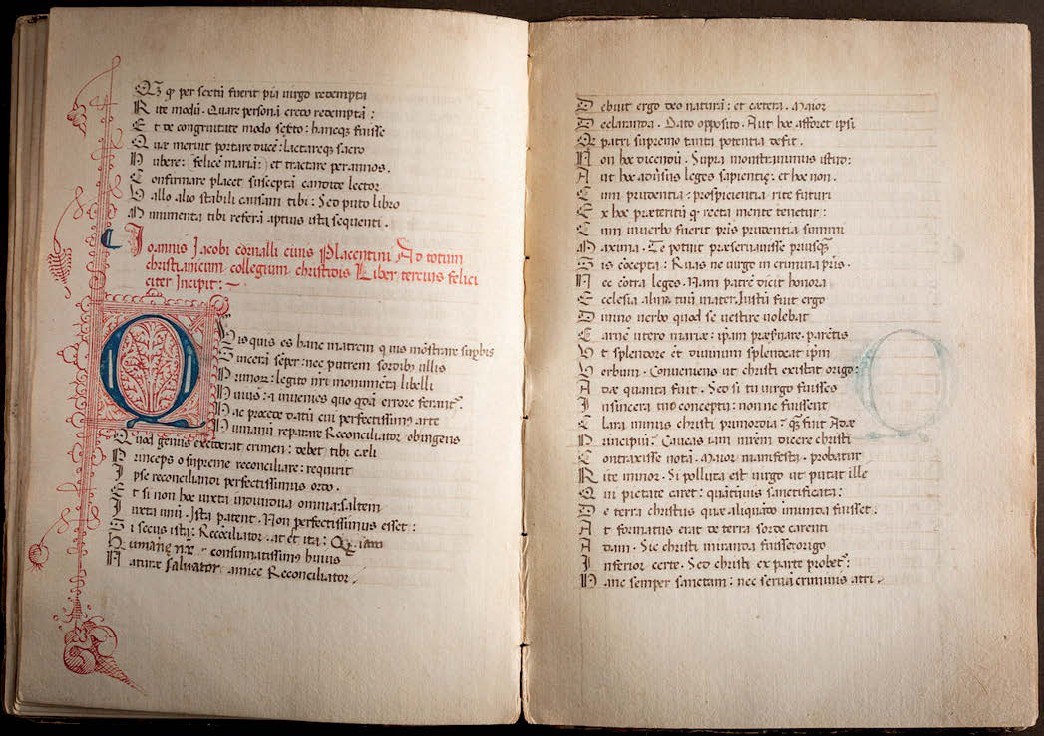 Qƺ ꝙ per sextū fuerit pia virgo redempta
Rite modū. Quare personā credo redemptā:
Et de congruitate modo sexto: hancqƺ fuisse
Quæ meruit portare ducē: lactareqƺ sacro
Vbere: felicē mariā: et tractare per annos.
Confirmare placet suscepta candide lector
Vallo alio stabili causam tibi: Sed puto libro
Munimenta tibi referā aptius ista sequenti.
Ioannis Iacobi cornalli civis Placentini Ad totum
christianicum collegium christidos Liber tercius felici
citer Incipit:
Q
Vis quis es hanc matrem qui monstrare
Sincerā sēper: nec putrem sordibus ullis
legito nr̄i monumēta libelli
invenies quo errore
Hac procede datū cui perfectissima arte
Humanū reparare Reconciliator
Quod genus exciderat crimen: debet tibi cæli
Princeps o supreme reconciliare: requirit
Ipse reconciliandi perfectissimus ordo.
Et si non hoc iuxta individua omnia: saltem
Iuxta unū. Ista patent. Non perfectissimus esset:
Si secus ista: Recōciliator. at et ita: Quoniam
Humanę consumatissimus huius
Naturæ Salvator. amice Reconciliator.
Debuit ergo deo naturā: et cætera. Maior
Declaranda. Dato opposito. Aut hoc afforet ipsi
Q patri supremo tanti potentia desit.
Non hoc dicendū. Supra monstravimus istud:
Aut hoc adversus leges sapientię: et hoc non.
Cum prudentia: prospicientia rite futuri
Ex hoc præteritū q̄ recta mente tenetur:
Cum in verbo fuerit pris prudentia summi
Maxima. Te potuit præservavisse priusqƺ
Sis cōcepta: Ruas ne virgo in crimina pris.
Nec contra leges. Nam patrē dicit honora
Ecclesia alma tuū mater. Iustū fuit ergo
Divino verbo quod se vestire volebat
Carnē utero mariæ: ipsam præservare. parētis
Vt splendore et divinum splendeat ipsum
Verbum. Conveniens ut christi existat origo:
Adæ quanta fuit. Sed si tu virgo fuisses
Insincera tuo conceptu: non ne fuissent
Clara minus christi primordia: q̄ƺ fuit Adæ
Principiū? Caveas iam dicere christi
Contraxisse notā. Maior manifesta. probatur
Rite minor. Si polluta est virgo ut putat ille
Qui pietate caret: quātumvis sanctificata:
De terra christus quæ aliquādo immunda fuisset.
At formatus erat de terra sorde carenti
Adam. Sic christi miranda fuisset origo
Inferior certe. Sed christi ex parte probetur:
Hanc semper sanctam: nec servā criminis atri.